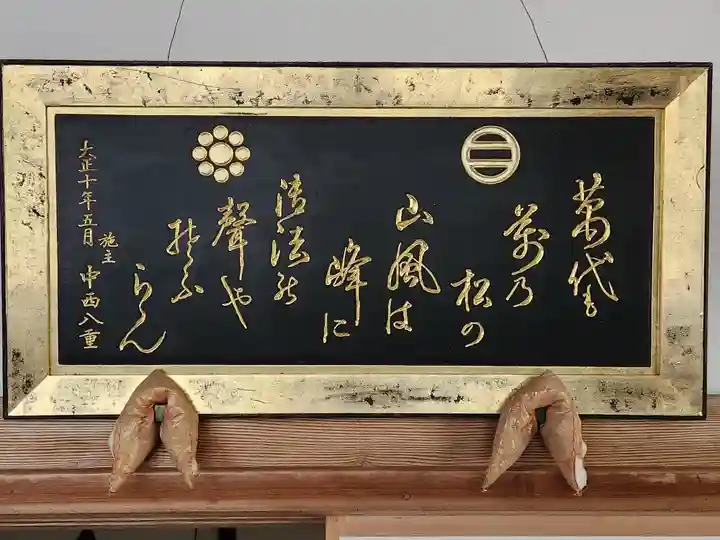 萬代も
萬乃
松の
山風は
峰に
法能
聲や
そふ
らん
大正十年五月
施主
中西八重